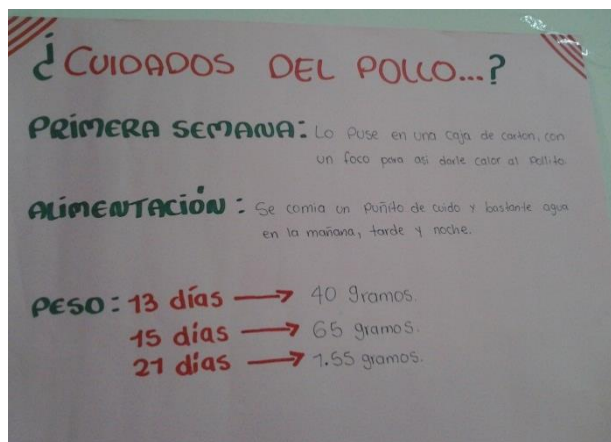 ¿CUIDADOS DEL POLLO...?
PRIMERA SEMANA: Lo puse en una caja de carton, con
un foco para asi darle calor al pollito
ALIMENTACIÓN: Se comia un puñito de cuido y bastante agua
en la mañana, tarde y noche.
PESO: 13 días → 40 gramos.
15 días → 65 gramos.
21 días → 1.55 gramos.